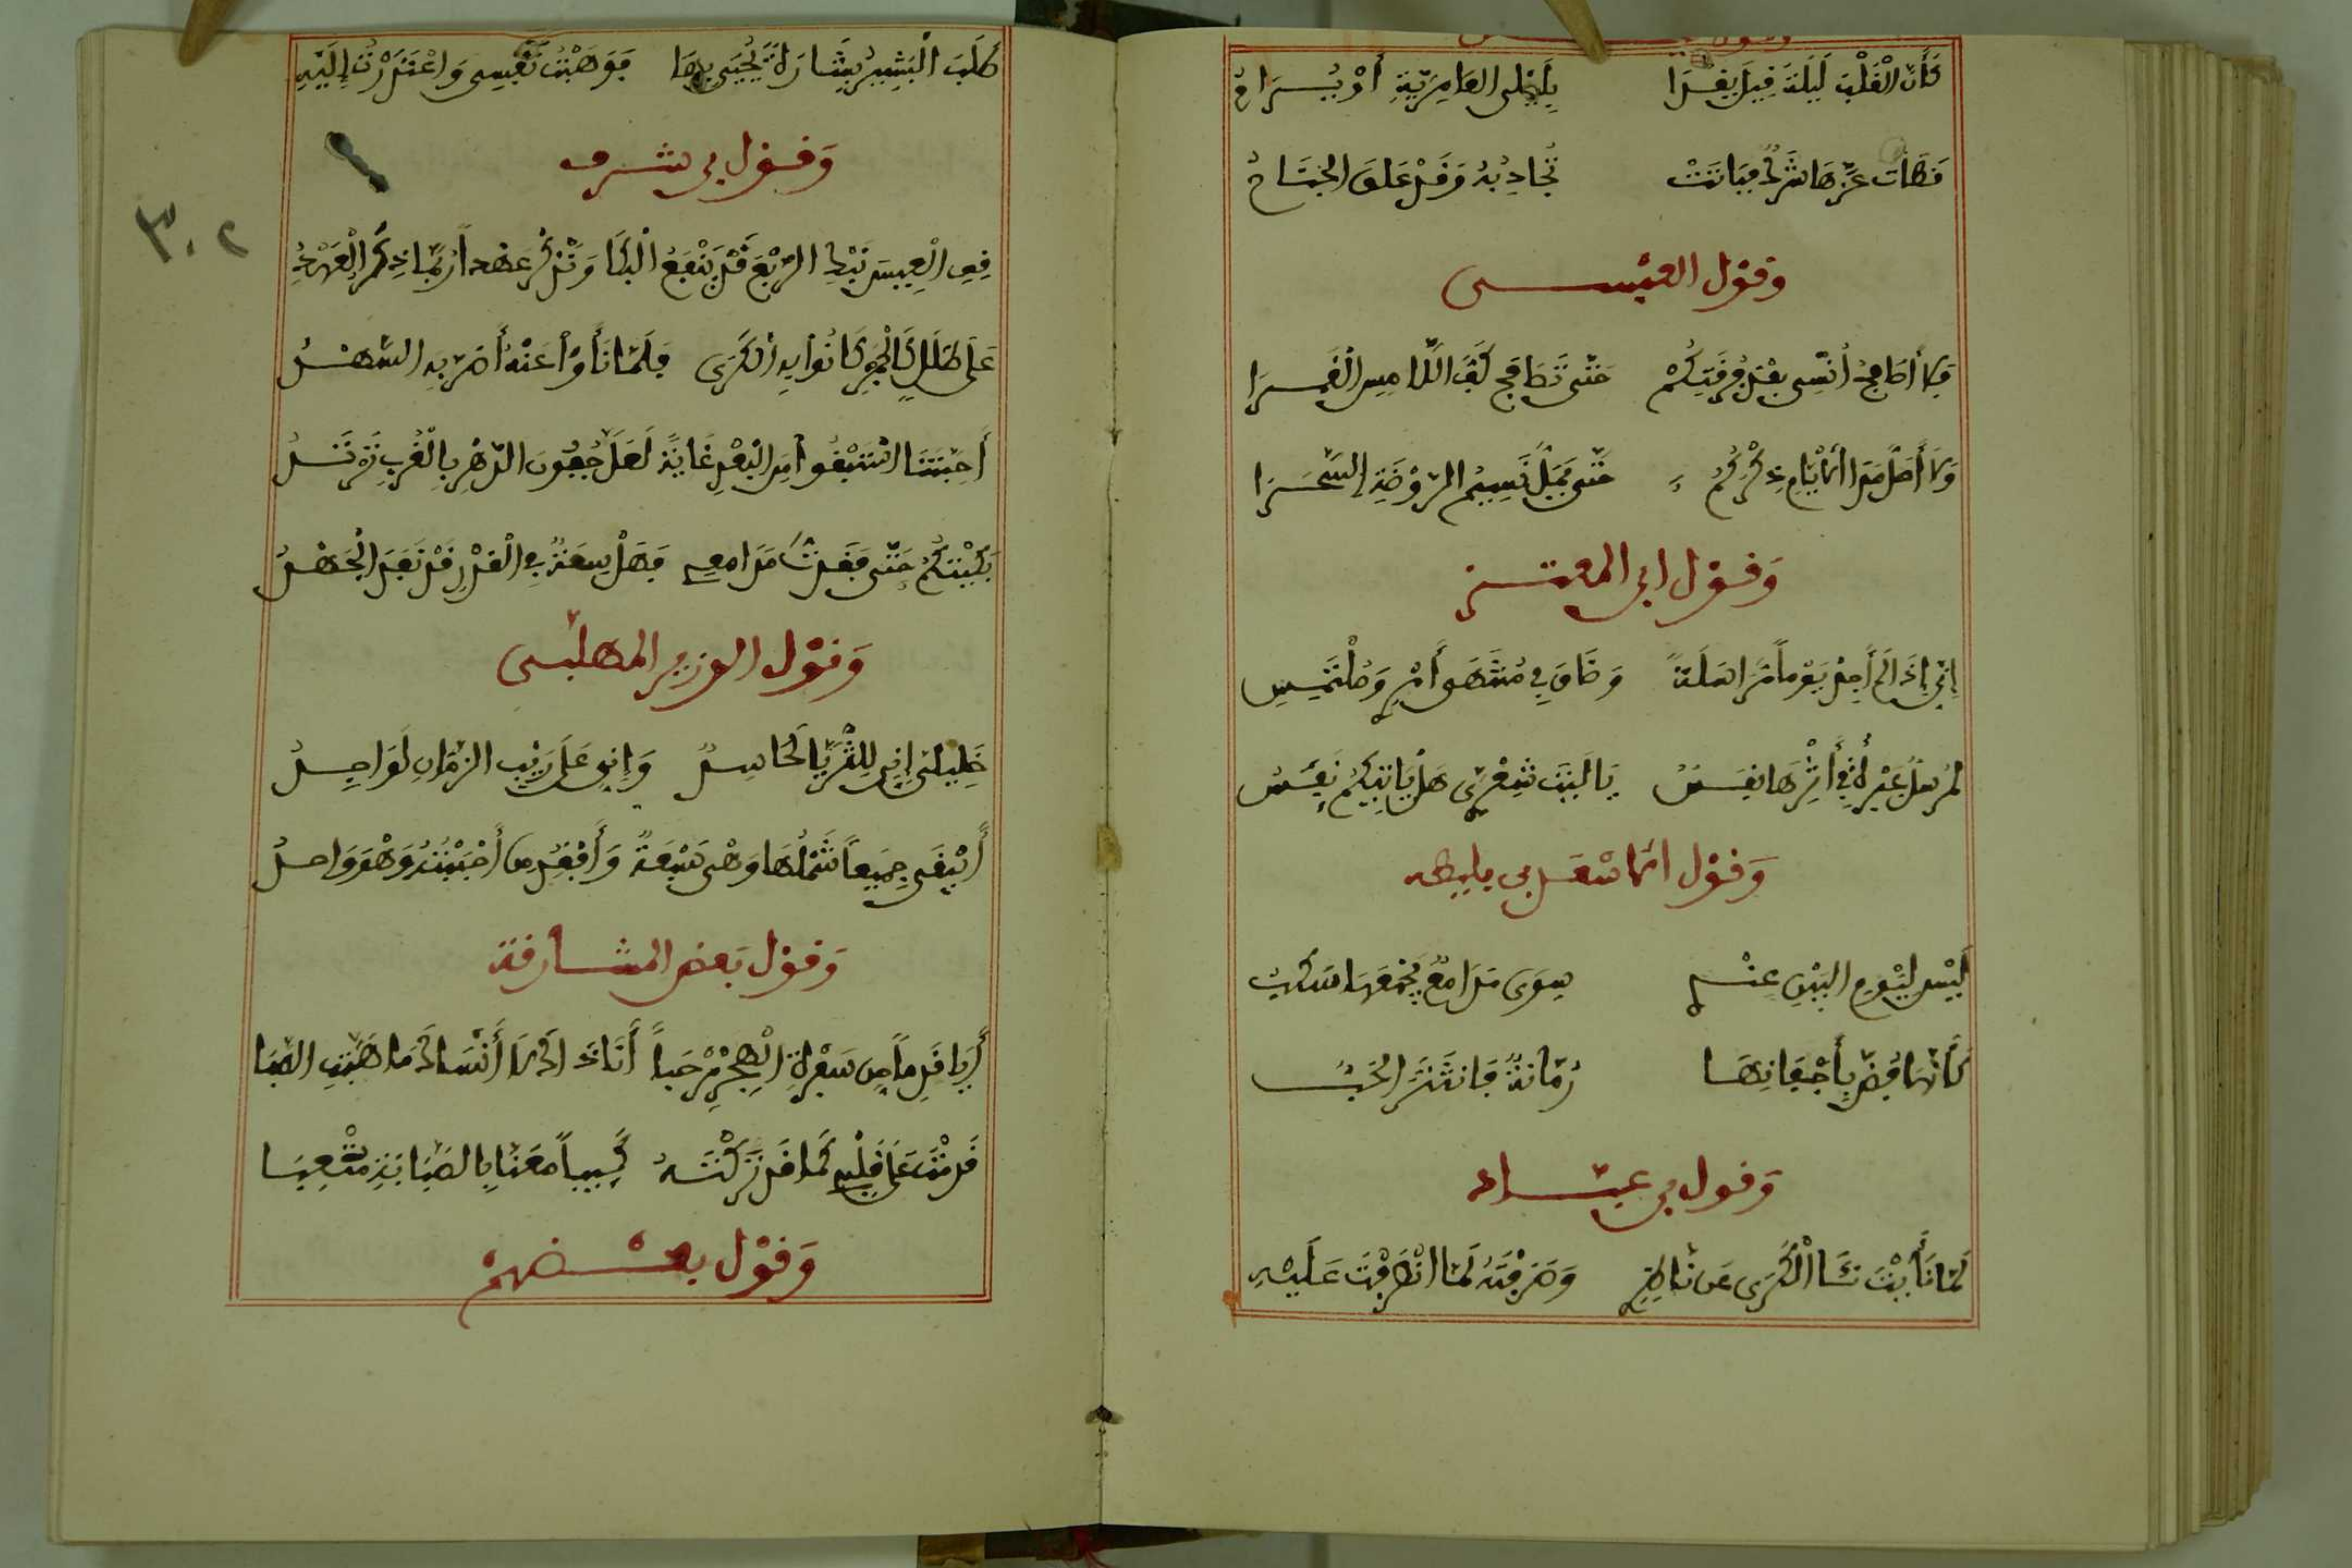 كَأَنَّ الْقَلْبَ لَيْلَةَ قِيلَ يُغْدَا بِلَيْلَى العَامِرِيَّةِ أَوْ يُــرَاحُ
قَطَاةٌ عَزَّهَا شَرَكٌ فَبَاتَتْ تُجَاذِبُهُ وَقَدْ عَلِقَ الجَنَاحُ
وَقَوْل العَبْســـى
وَلا أُصَافِحُ أُنْسِى بَعْدَ فُرْقَتِكُمْ حَتَّى تُصَافِحَ كَفُّ اللَّامِسِ الْقَمَــرَا
وَلَا أَمَلُّ مَدَا الأَيَّامِ ذِكْرَكُمُ حَتَّى يَمَلَّ نَسِيمُ الرَّوْضَةِ السَّحَــرَا
وَقَوْل ابن المعتـــز
إِنِّي إِذَا لَمْ أَجِدْ يَوْماً مُرَاسَلَةً وَضَاقَ بِي مُشْتَهَى أَمْرِي وَمُلْتَمَسِي
لَمُرْسِلٌ عَبْرَةً فِي أَثْرِهَا نَفَسٌ يَا لَيْتَ شِعْرِي هَلْ يَاتِيكُمُ نَفَسِي
وَقَوْل الاسْعَــد بن بليطه
لَيْسَ لِيَوْمِ البَيْنِ عِنْــدِي سِوَى مَدَامِعٍ يَجْمَعُهَا سَكْبُ
كَأَنَّهَا فُضَّ بِأَجْفَانِهَـا رُمَّانَةٌ فَانْتَثَرَ الحَبُّــ
وَقَول بن عبَّـــاد
لَمَّا نَأَيْتَ نَــأَا الْكَرَى عَن نَاظِرِي وَصَرَفْتَهُ لَمَّا انْصَرَفْتَ عَلَيْــهِ
طَلَبَ الْبَشِيرُ بِشَارَةً يُجْبَى بِهَا فَوَهَبْتُ نَفْسِى وَاعْتَذَرْتُ إِلَيْهِ
وَقَــوْل بن شـــرف
قِفِ الْعِيسَ نَبْكِ الرَّبْعَ قَدْ يَنْفَعُ الْبُكَا وَنَذْكُرْ عَهْداً رُبَّمَا ذُكِرَ الْعَهْدُ
عَلَى طَلَلٍ كَالْجَفْنِ كَانُوا بِهِ الْكَرَى فَلَمَّا نَأَوْا عَنْهُ أَضَرَّ بِهِ السُّهْــدُ
أَحِبَّتَنَا اسْتَبْقُوا مِنَ البُعْدِ غَايَةً لَعَلَّ جُفُونَ الدَّهْرِ بِالْقُرْبِ تَرْتَــدُّ
بَكَيْتُكُمُ حَتَّى فَقَدْتُ مَدَامِعِى وَهَلْ سَعَةٌ فِي الْقَدْرِ قَدْ نَفَدَ الْجَهْــدُ
وَقَوْل الوزير المهلّبــى
خَلِيلَىَّ إِنِّى لِلثُّرَيَّا لَحَاسِــدُ وَإِنِّى عَلَى رَيْبِ الزَّمَانِ لَوَاجِــدُ
أَيَبْقَى جَمِيعاً شَمْلُهَا وَهْىَ سَبْعَةٌ وَأَفْقِدُ مَن أَحْبَبْتُهُ وَهْوَ وَاحــدُ
وَقَوْل بَعض المشــارقة
أَيَا قَادِماً مِن سَفْرَةِ الْهَجْرِ مَرْحَباً أَنَا ذَاكَ لَا أَنْسَاكَ مَا هَبَّتِ الصَّبَا
قَدِمْتَ عَلَى قَلْبِى كَمَا قَدْ تَرَكْتَــهُ كَئِيباً مُعَنًّا بِالصَّبَابَةِ مُتْعَبَــا
وَقَوْل بعــضهمْ
٣٠٢